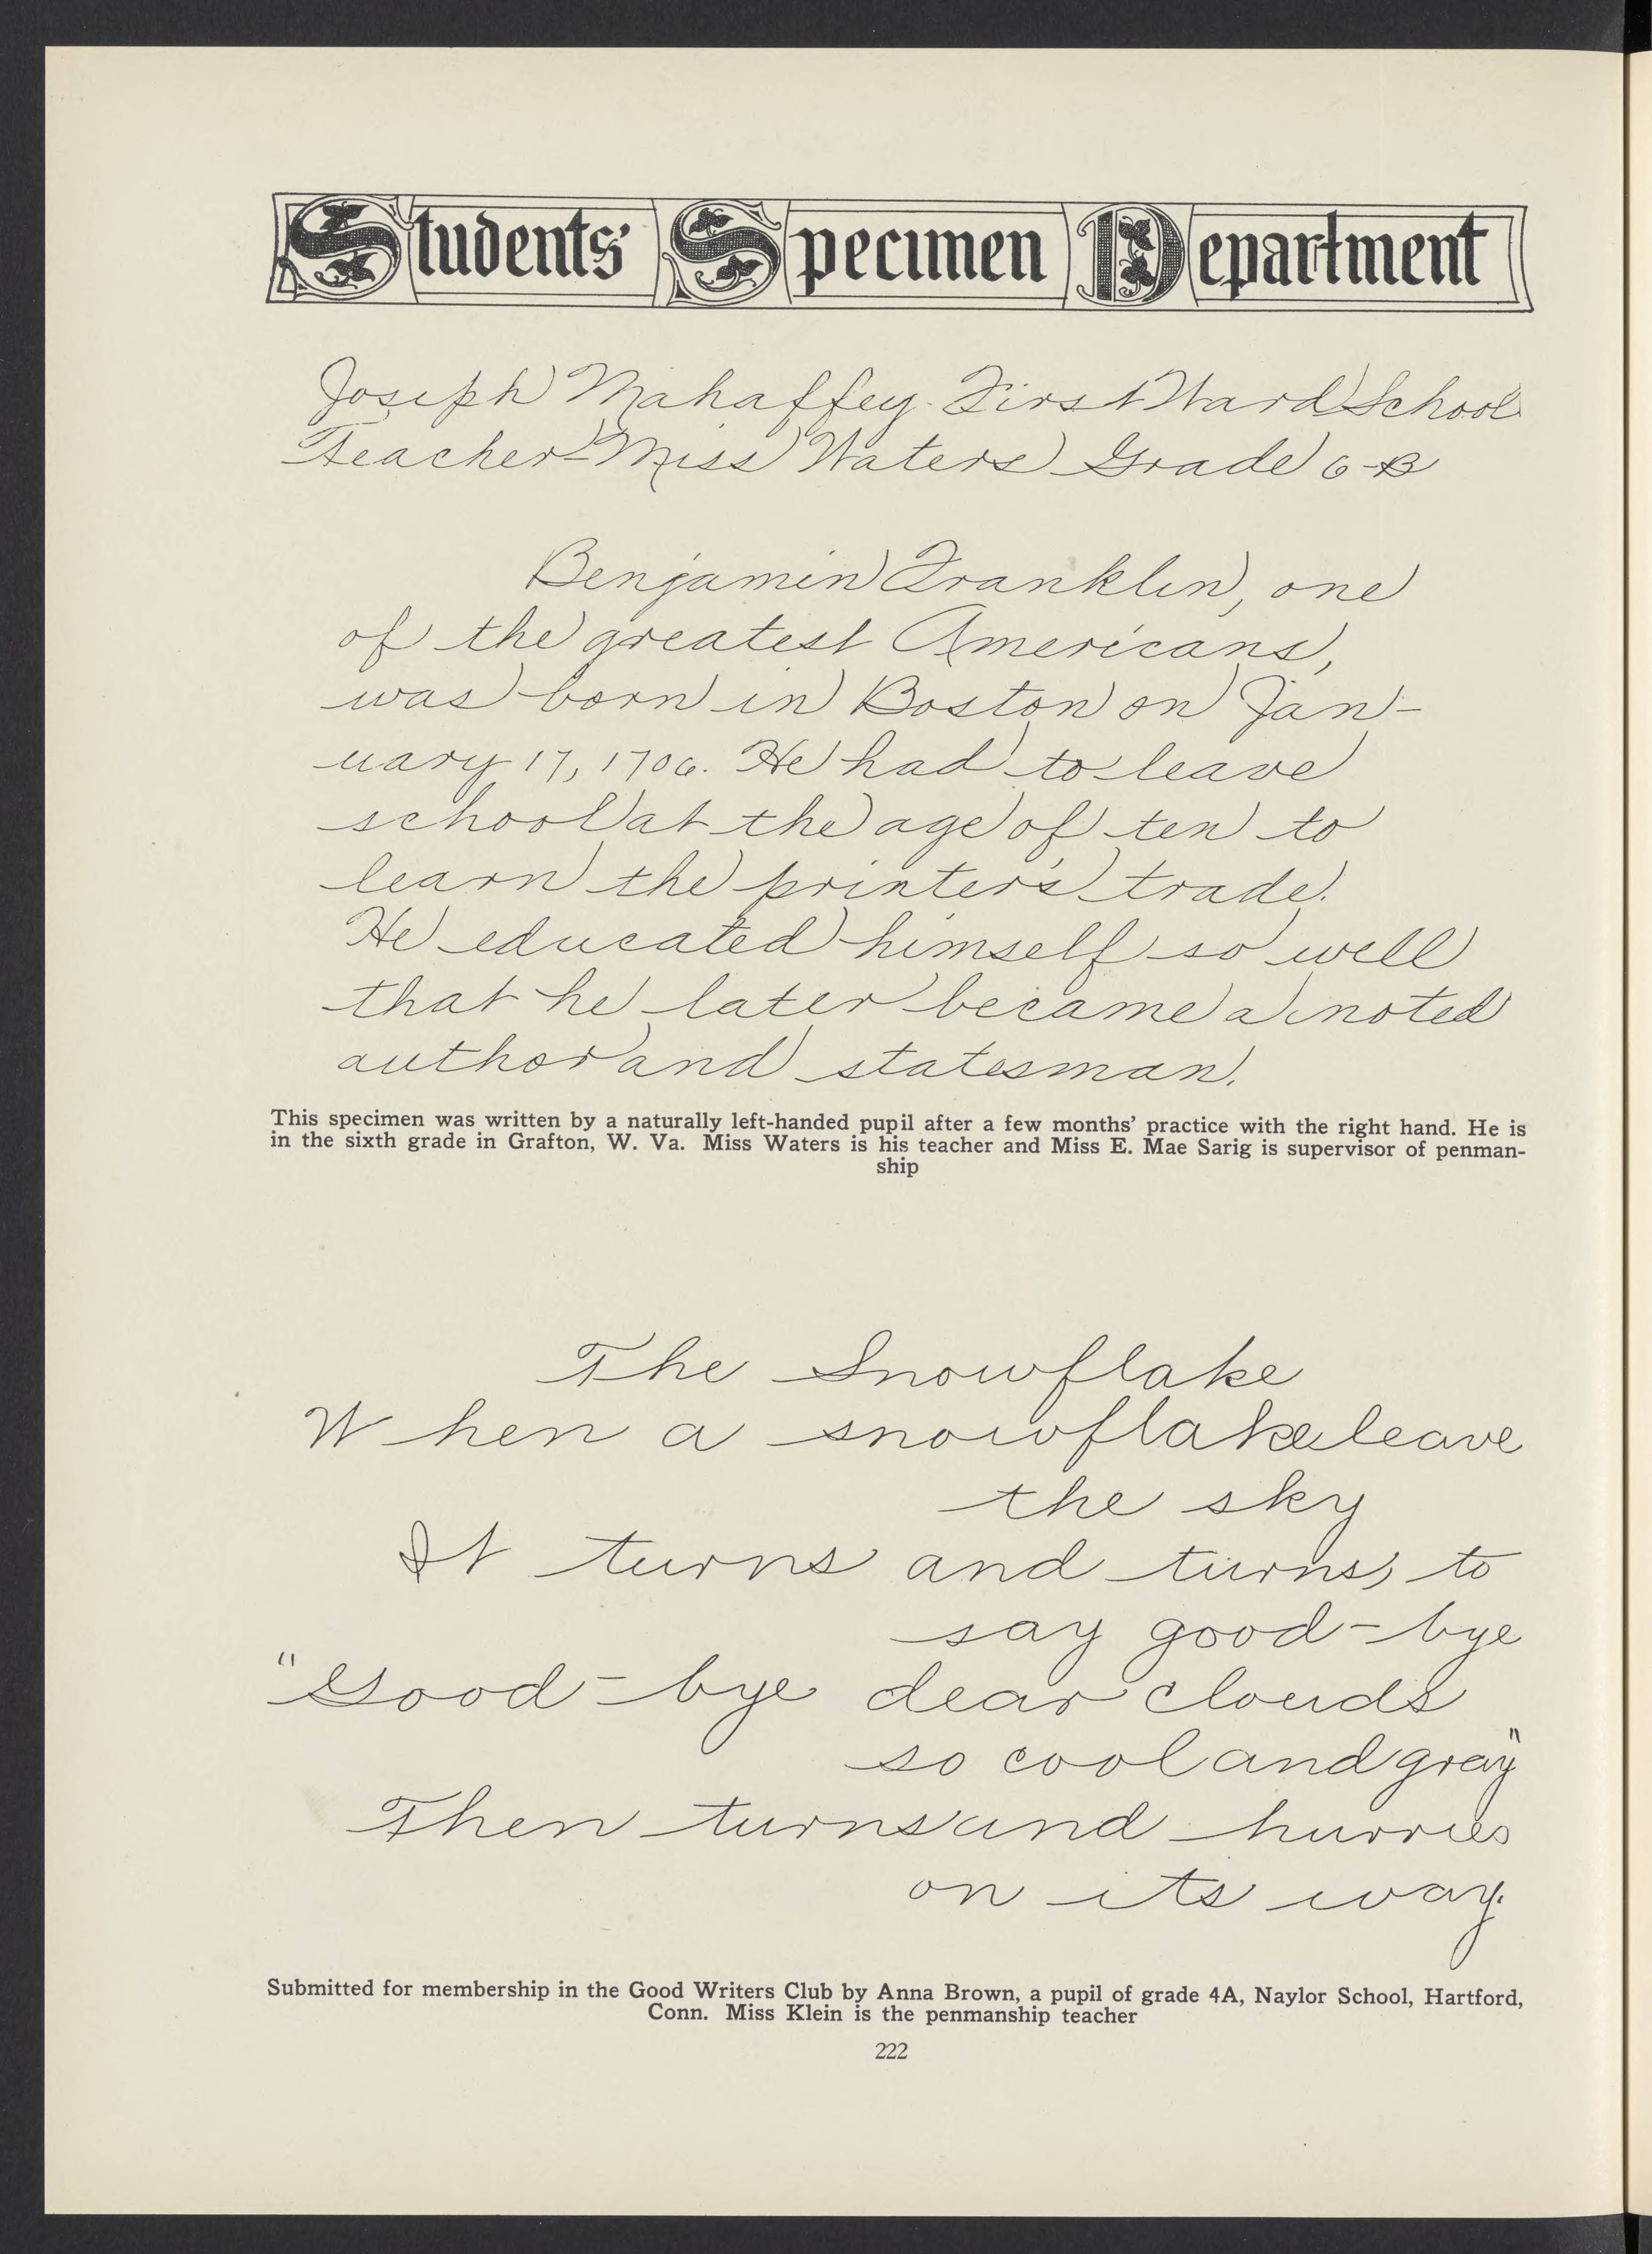 Students' Specimen Department
Joseph Mahaffey. First Ward School
Teacher-Miss Waters Grade 6-B
Benjamin Franklin, one
of the greatest Americans,
was born in Boston on Jan-
uary 17, 1706. He had to leave
school at the age of ten to
learn the printer's trade.
He educated himself so well
that he later became a noted
author and statesman.
This specimen was written by a naturally left-handed pupil after a few months' practice with the right hand. He is
in the sixth grade in Grafton, W. Va. Miss Waters is his teacher and Miss E. Mae Sarig is supervisor of penman-
ship
The Snowflake
When a snowflake leave
the sky
It turns and turns, to
say good-bye
"Good-bye dear clouds
so cool and gray"
Then turns and hurries
on its way.
Submitted for membership in the Good Writers Club by Anna Brown, a pupil of grade 4A, Naylor School, Hartford,
Conn. Miss Klein is the penmanship teacher
222